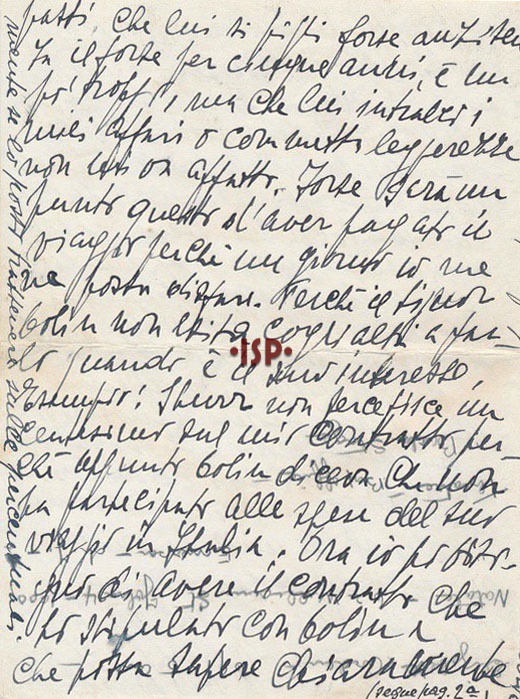 patti. Che lui si pigli forse anzi sen
za il forse per cinque anni, è un
po' troppo, ma che lui intralci i
miei affari o commetta leggerezze
non mi va affatto. Forse sarà un
punto questo d'aver pagato il
viaggio perchè un giorno io me
ne possa disfare. Perchè il Signor
Bolin non esita cogli altri a far-
lo quando è il suo interesse,
Esempio! non percepisce un
centesimo sul mio contratto per-
chè appunto Bolin diceva che non
ha partecipato alle spese del suo
viaggio in Italia. Ora io ho biso-
gno di avere il contratto che
ho stipulato con Bolin e
che possa sapere chiaramente
segue pag. 2a
mente se lo posto trattenere sulle percentuali.
·ISP·